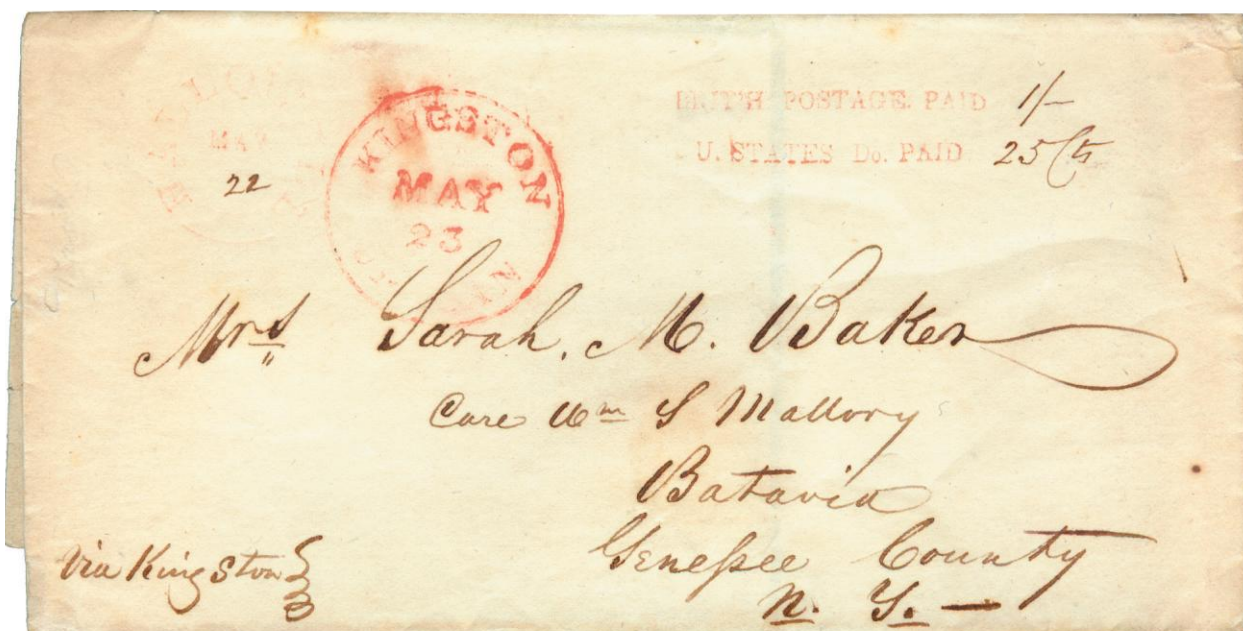 MAY
22
KINGSTON
MAY
23
BRIT'H POSTAGE PAID 1/-
U. STATES Do. PAID 25 Cts
Mrs Sarah. M. Baker
Care Wm S Mallory
Batavia
Geneſsee County
N. Y. —
Via Kingston